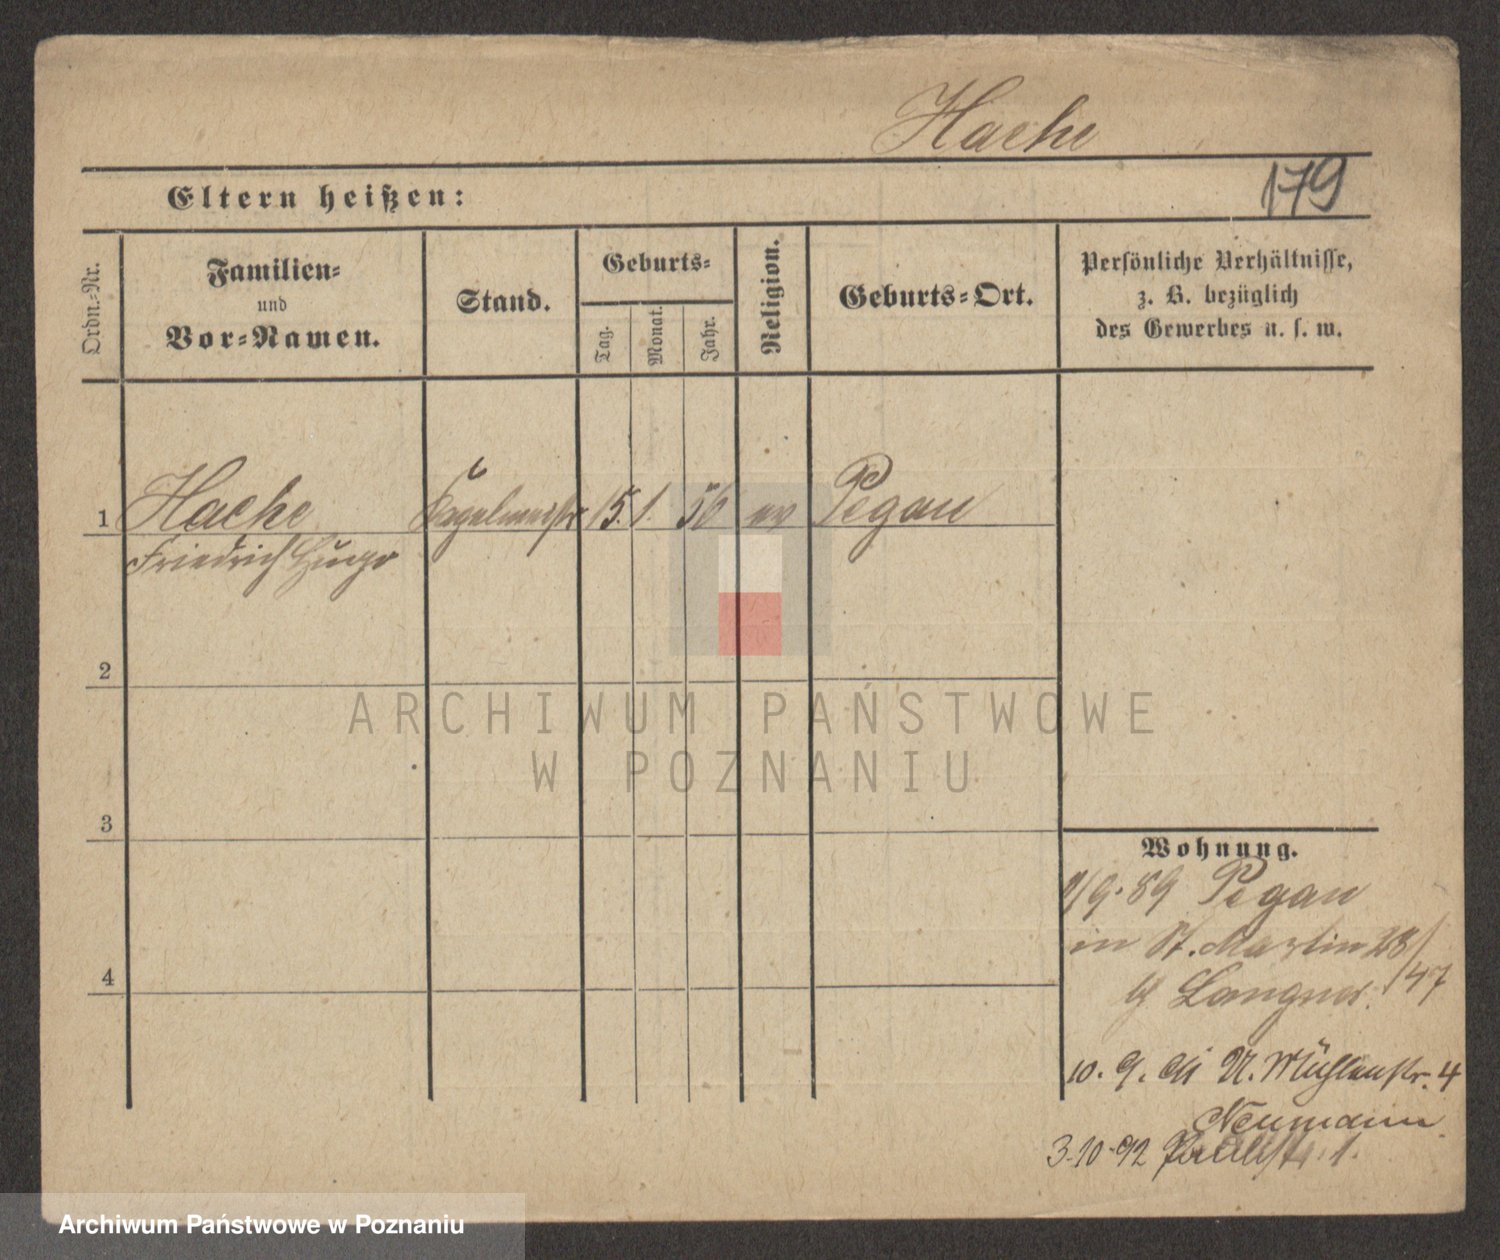 Hache
179
Eltern heißen:
Ordn.-Nr.
Familien-
und
Vor-Namen.
Stand.
Geburts-
Tag.
Monat.
Jahr.
Religion.
Geburts-Ort.
Persönliche Verhältnisse,
z. B. bezüglich
des Gewerbes u. s. w.
1 Hache 15. 1. 56 ev Pegau
Friedrich Hugo
2
3
4
Wohnung.
9. 89 Pegau
in St. Martin 28/47
Langner.
10. 9. U. Mühlenstr. 4
Neumann.
3.10.92 1.
ARCHIWUM PAŃSTWOWE
W POZNANIU
Archiwum Państwowe w Poznaniu